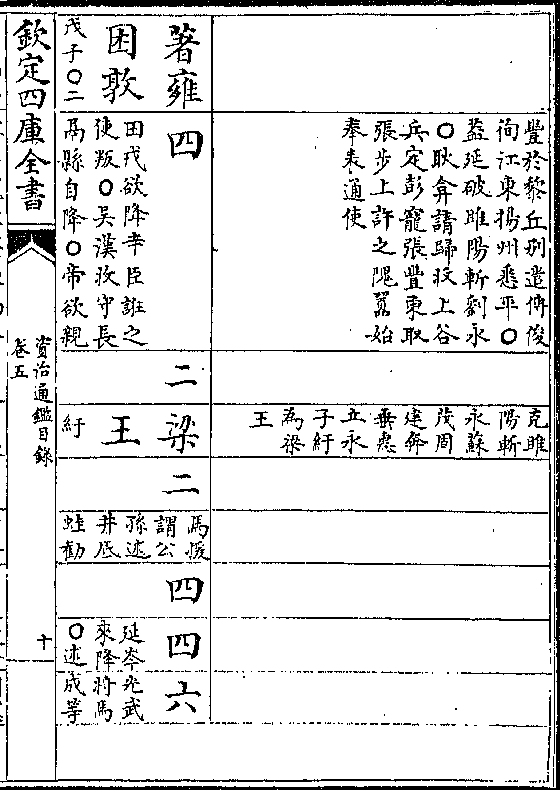 豐於黎丘別遣傅俊
徇江東揚州悉平〇
蓋延破睢陽斬劉永
〇耿弇請歸收上谷
兵定彭寵張豐東取
張步上許之隗囂始
奉表通使
克睢
陽斬
永蘇
茂周
建奔
垂惠
立永
子紆
為梁
王
著雍
困敦
戊子〇二
四
田戎欲降辛臣誑之
使叛〇吳漢收守長
鬲縣自降〇帝欲親
二
梁
王
紆
二
馬援
謂公
孫述
井底
蛙勸
四
四
延岑
來降
〇述
六
光武
將馬
成等
欽定四庫全書
資治通鑑目錄
卷五
十